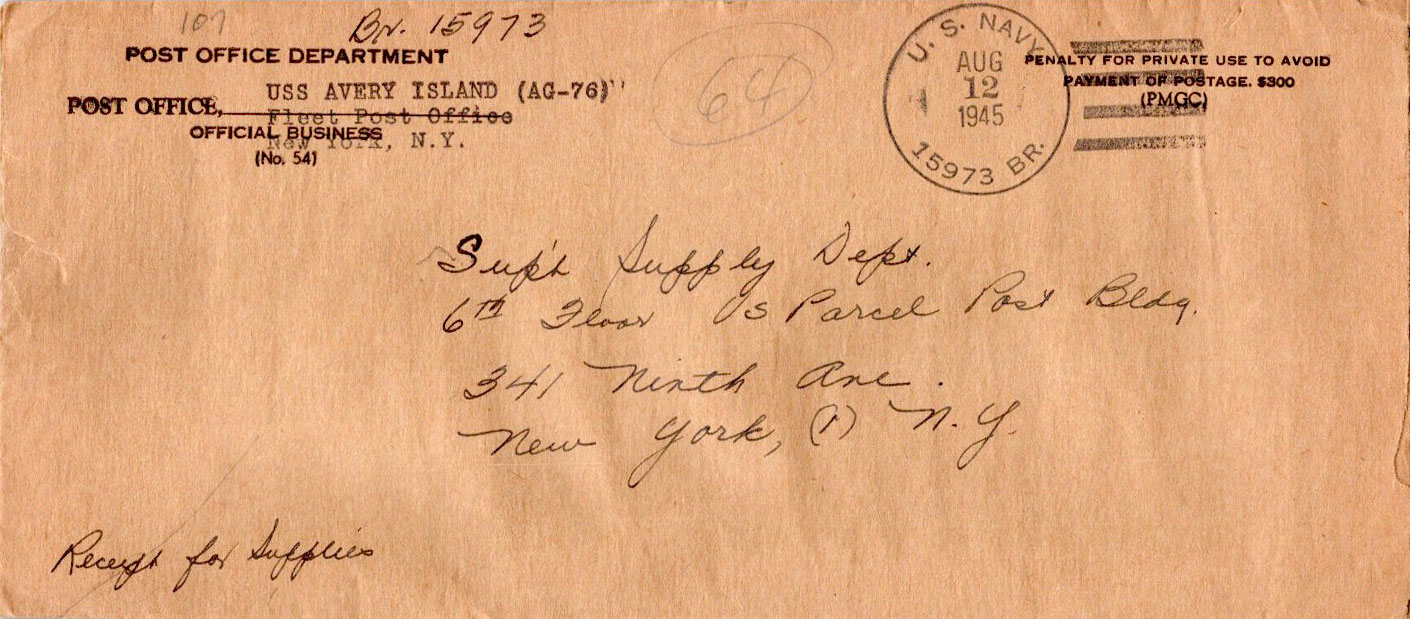 107
Br. 15973
POST OFFICE DEPARTMENT
USS AVERY ISLAND (AG-76)"
POST OFFICE,
Fleet Post Office
OFFICIAL BUSINESS
New York, N.Y.
(No. 54)
64
U. S. NAVY
AUG
12
1945
15973 BR.
PENALTY FOR PRIVATE USE TO AVOID
PAYMENT OF POSTAGE. $300
(PMGC)
Sup't Supply Dept.
6th Floor US Parcel Post Bldg.
341 Ninth Ave.
New York, (1) N.Y.
Receipt for Supplies